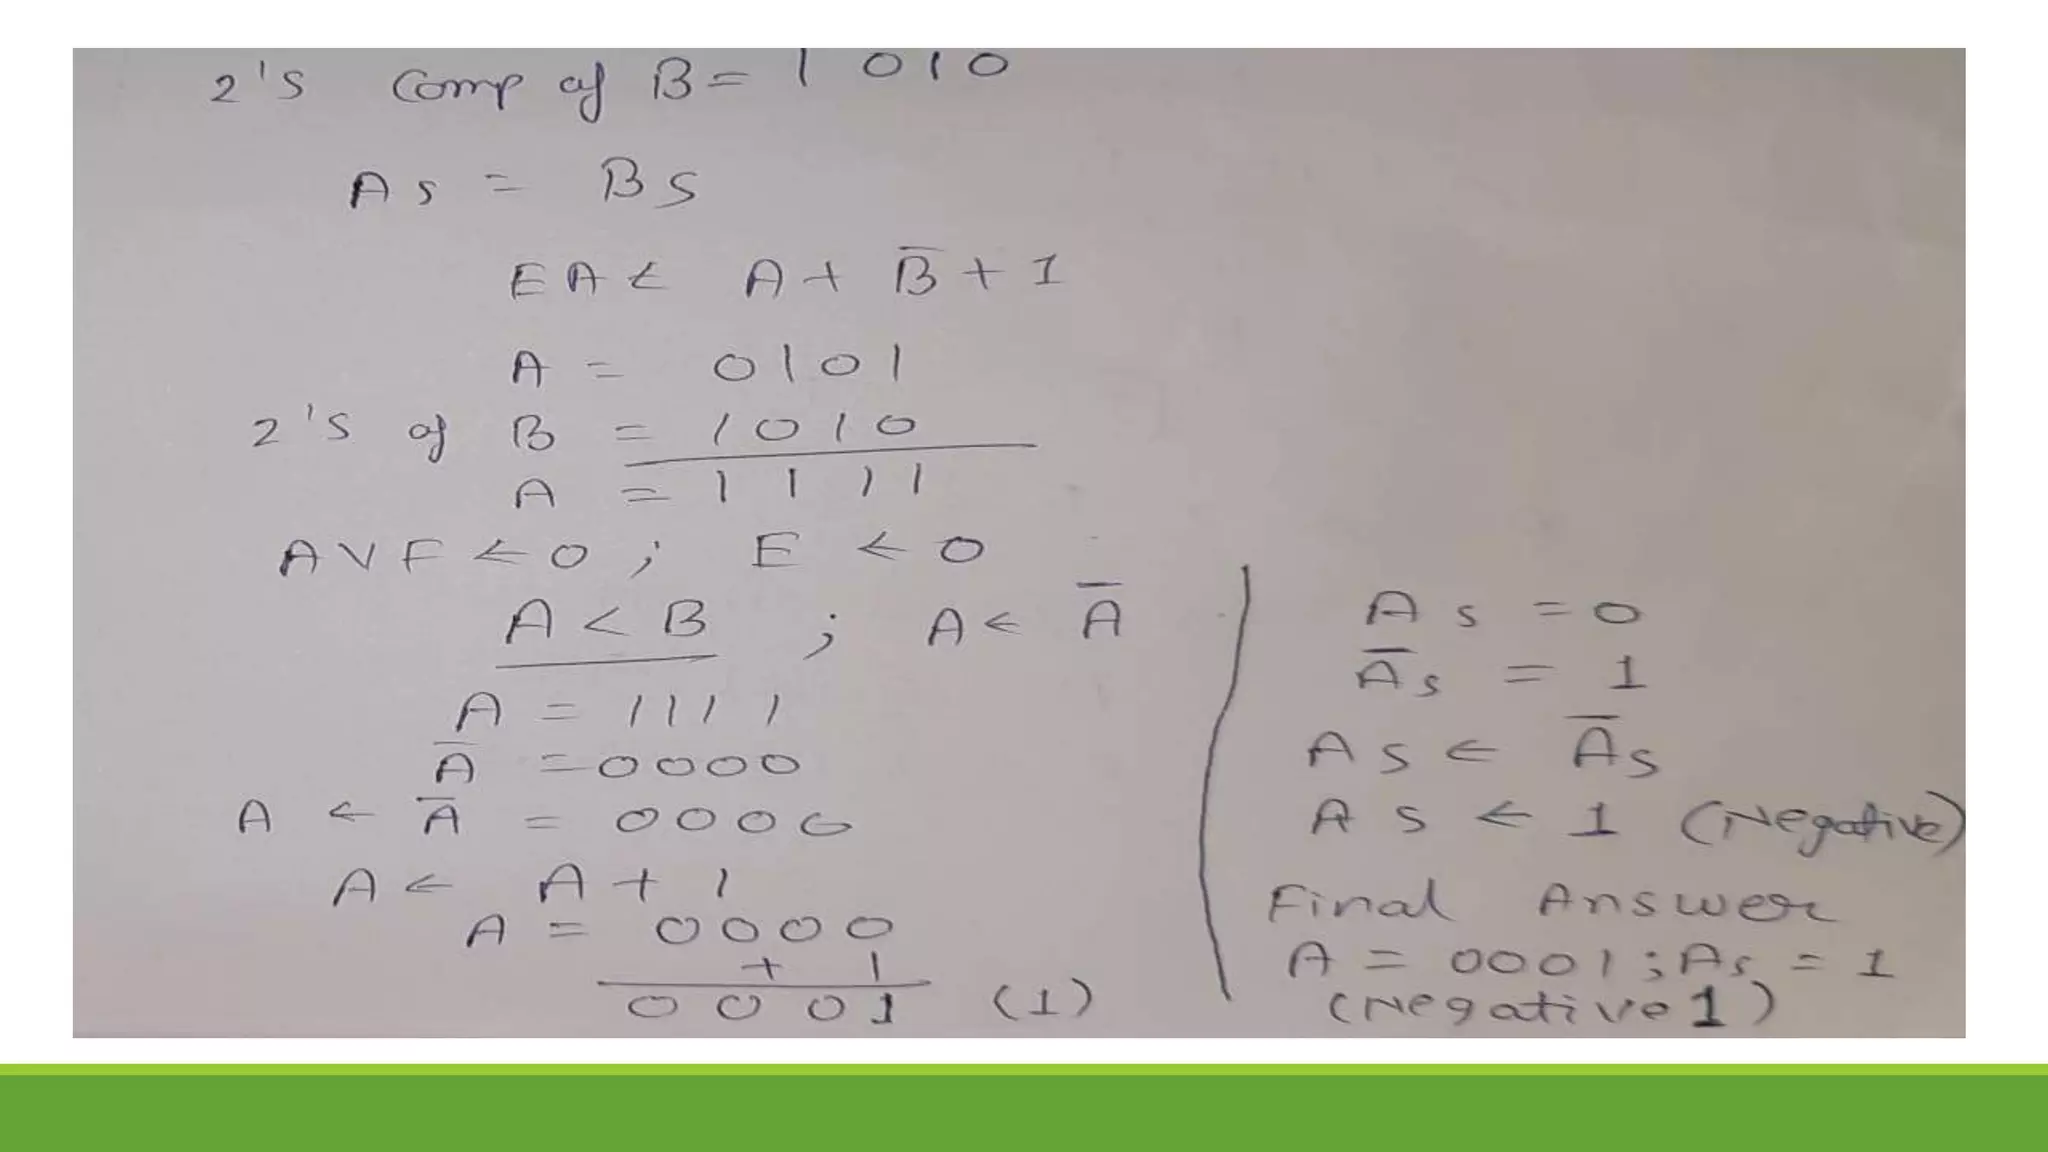 2's Comp of B = 1 0 1 0
As = Bs
EA ← A + B̅ + 1
A = 0101
2's of B = 1010
A = 1111
AVF ← 0 ; E ← 0
A < B ; A ← A̅
A = 1111
A̅ = 0000
A ← A̅ = 0000
A ← A + 1
A = 0000
+ 1
0001 (1)
As = 0
A̅s = 1
As ← A̅s
As ← 1 (Negative)
Final Answer
A = 0001 ; As = 1
(Negative 1)